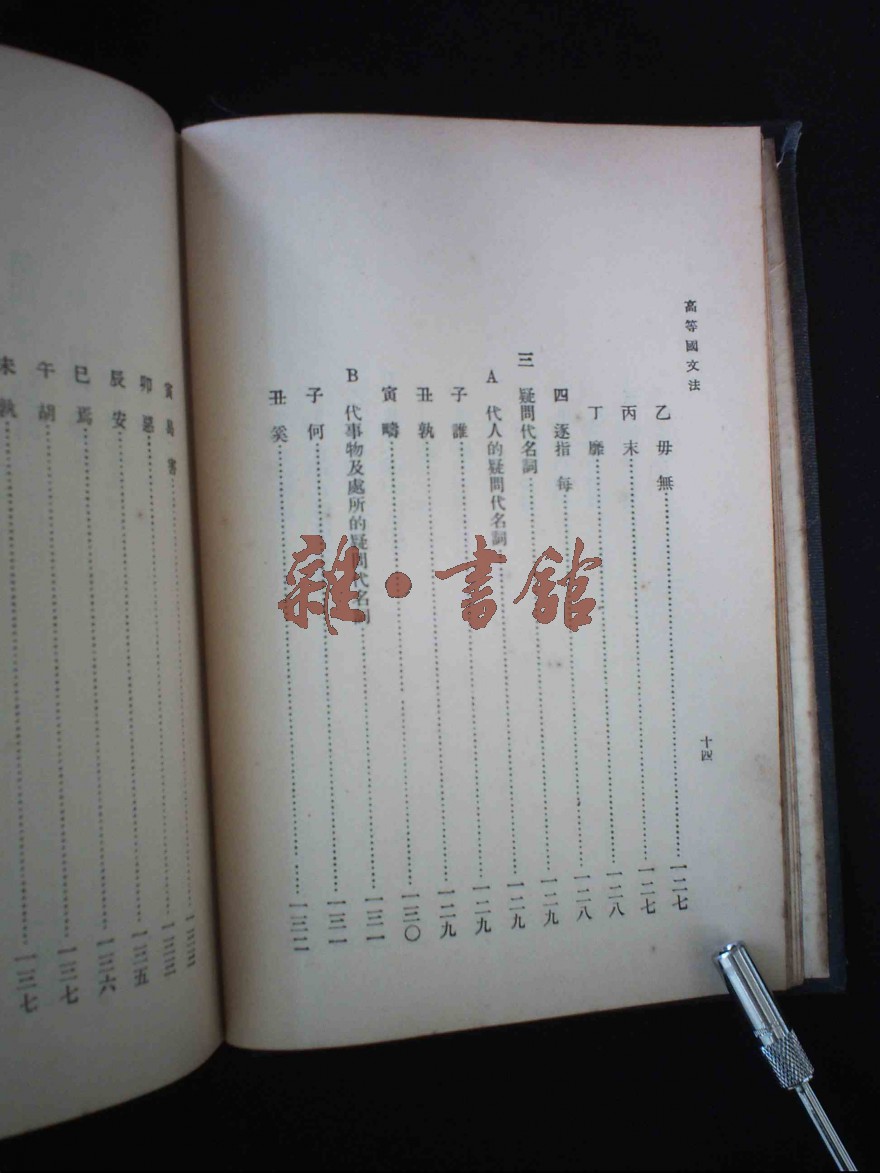 高等國文法
十四
乙 毋 無……一二七
丙 末……一二七
丁 靡……一二八
四 逐指 每……一二八
三 疑問代名詞……一二九
A 代人的疑問代名詞……一二九
子 誰……一二九
丑 孰……一二九
寅 疇……一三〇
B 代事物及處所的疑問代名詞……一三一
子 何……一三一
丑 奚……一三二
寅 曷 害……一三三
卯 惡……
辰 安……一三五
巳 焉……一三六
午 胡……一三七
未 孰……一三七
雜·書舘